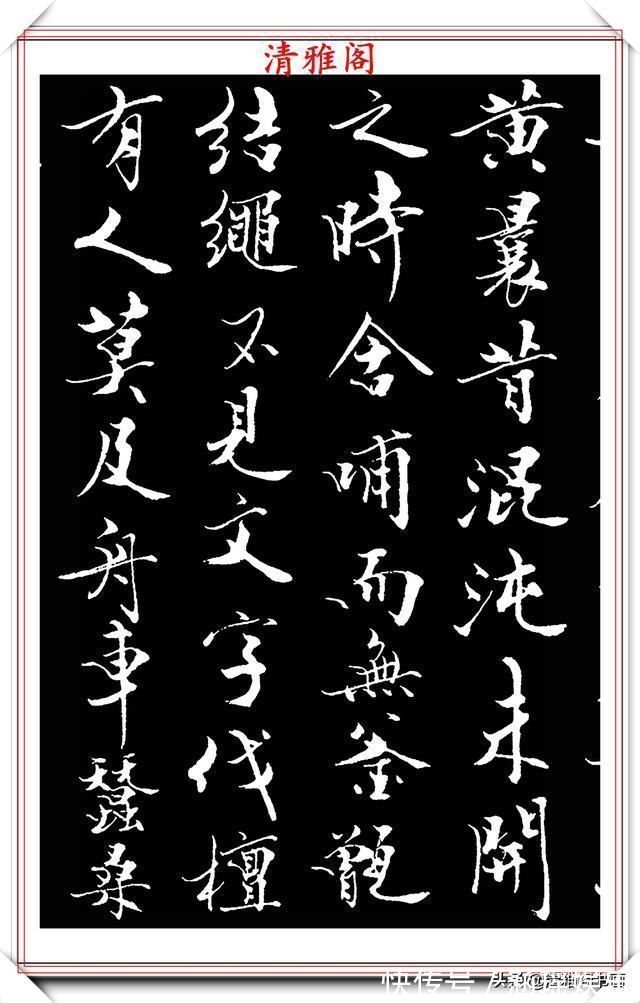 清雅阁
黄曩昔混沌未開
之時含哺而無釜甑
結繩不見文字伐檀
有人莫及舟車蠶桑
快传号
头条@清雅阁书斋